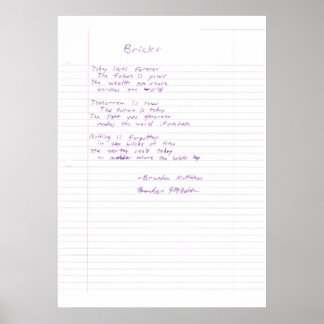 Bricks
Today lasts forever
The future is yours
The wealth you share
enriches the world
Tomorrow is now
The future is today
The light you generate
makes the world illuminate
Nothing is forgotten
in the bricks of time
the mortar seals today
no matter where the bricks lay
-Brandon McMahon
Brandon